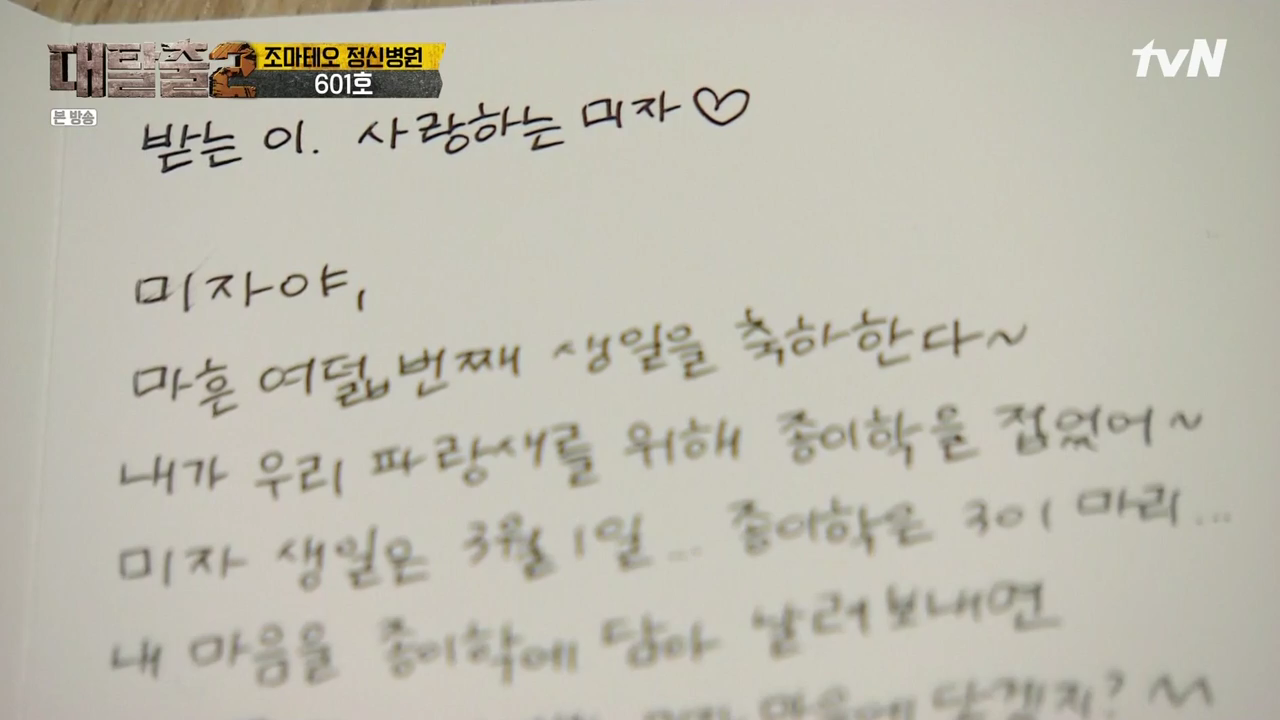 대탈출2
조마테오 정신병원
601호
tvN
본 방송
받는 이. 사랑하는 미자♡
미자야,
마흔 여덟번째 생일을 축하한다~
내가 우리 파랑새를 위해 종이학을 접었어~
미자 생일은 3월 1일... 종이학은 301 마리...
내 마음을 종이학에 담아 날려보내면
마음에 닿겠지?